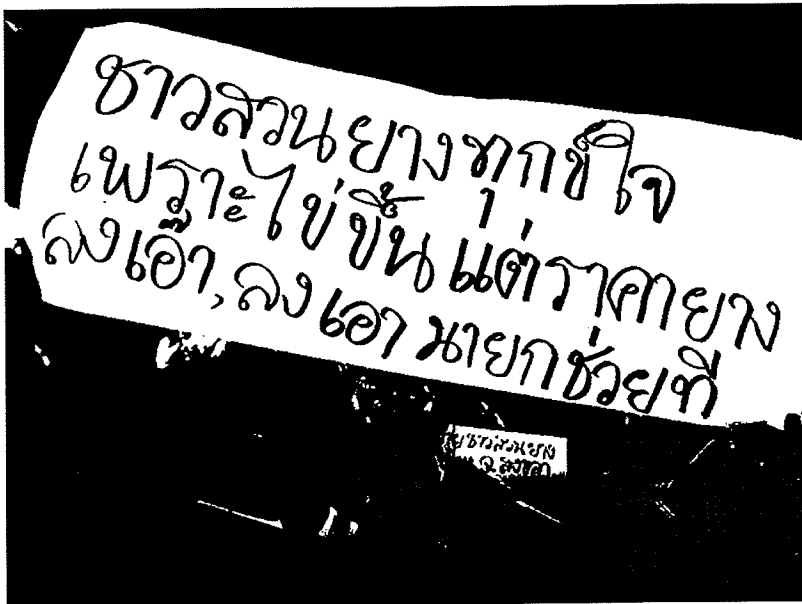 ชาวสวนยางทุกข์ใจ
เพราะไข่ขึ้น แต่ราคายาง
ลงเอ๊า, ลงเอา นายกช่วยที
ชาวสวนยาง
จ.สงขลา